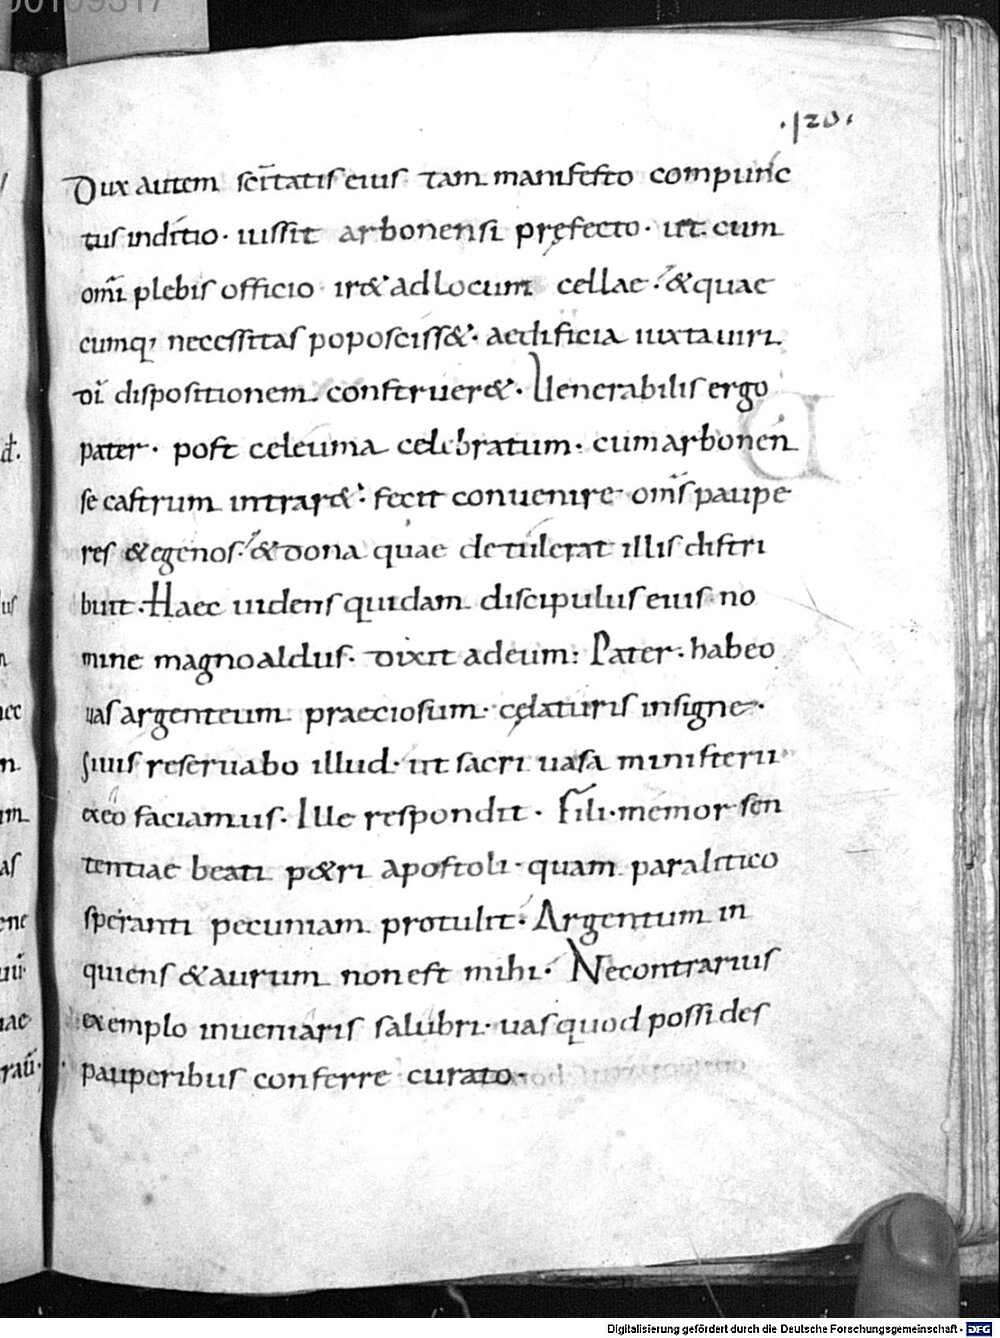 00109317
·120·
Dux autem scītatis eius tam manifesto compunc
tus inditio· iussit arbonensi pręfecto· ut cum
om̄i plebis officio ir& ad locum cellae· & quae
cumq; necessitas poposciss&· aedificia iuxta uiri
dī dispositionem construer&· Uenerabilis ergo
pater· post celeuma celebratum· cum arbonen
se castrum intrar&· fecit conuenire om̄s paupe
res & egenos· & dona quae detulerat illis distri
buit· Haec uidens quidam discipulus eius no
mine magnoaldus· dixit ad eum: Pater· habeo
uas argenteum praeciosum· cęlaturis insigne·
Si uis reseruabo illud· ut sacri uasa ministerii
ex eo faciamus· Ille respondit· Fili· memor sen
tentiae beati p&ri apostoli· quam paralitico
speranti pecuniam protulit· Argentum in
quiens & aurum non est mihi· Ne contrarius
exemplo inueniaris salubri· uas quod possides
pauperibus conferre curato·
Digitalisierung gefördert durch die Deutsche Forschungsgemeinschaft - DFG